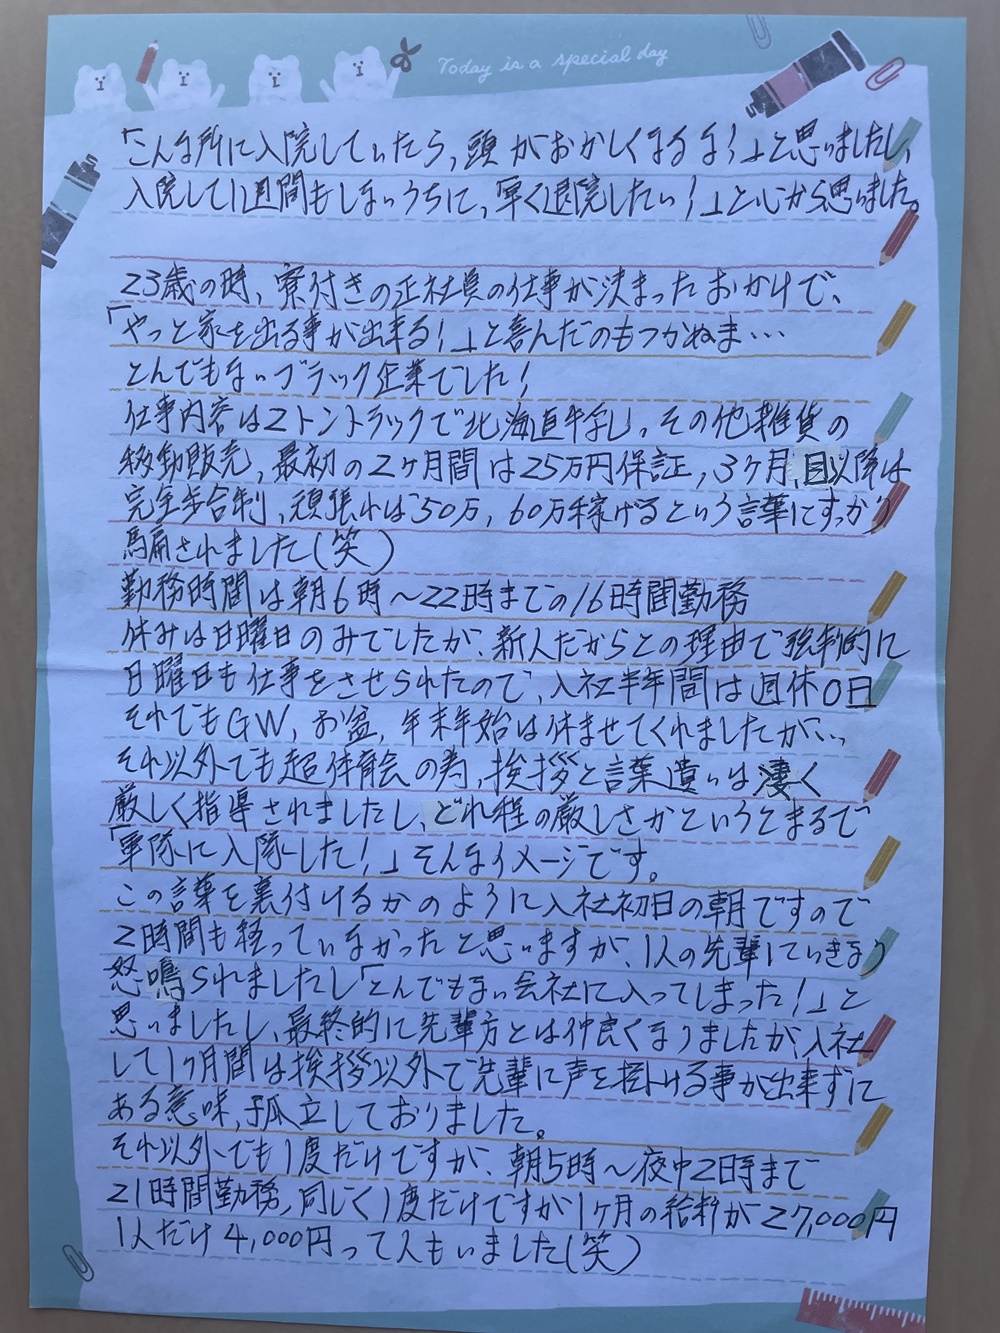 Today is a special day
「こんな所に入院していたら、頭がおかしくなるな！」と思いましたし、
入院して1週間もしないうちに、「早く退院したい！」と心から思いました。
23歳の時、寮付きの正社員の仕事が決まったおかげで、
「やっと家を出る事が出来る！」と喜んだのもつかぬま…
とんでもないブラック企業でした！
仕事内容は2トントラックで北海道牛乳、その他雑貨の
移動販売、最初の2ヶ月間は25万円保証、3ヶ月目以降は
完全歩合制、頑張れば50万、60万稼げるという言葉にすっかり
騙されました(笑)
勤務時間は朝6時〜22時までの16時間勤務
休みは日曜日のみでしたが、新人だからとの理由で強制的に
日曜日も仕事をさせられたので、入社半年間は週休0日
それでもGW、お盆、年末年始は休ませてくれましたが、、
それ以外でも超体育会の為、挨拶と言葉遣いは凄く
厳しく指導されましたし、どれ程の厳しさかというとまるで
「軍隊に入隊した！」そんなイメージです。
この言葉を裏付けるかのように入社初日の朝ですので
2時間も経っていなかったと思いますが、1人の先輩にいきなり
怒鳴られましたし「とんでもない会社に入ってしまった！」と
思いましたし、最終的に先輩方とは仲良くなりましたが、入社
して1ヶ月間は挨拶以外で先輩に声を掛ける事が出来ずに
ある意味、孤立しておりました。
それ以外でも1度だけですが、朝5時〜夜中2時まで
21時間勤務、同じく1度だけですが1ヶ月の給料が27,000円
1人だけ4,000円って人もいました(笑)